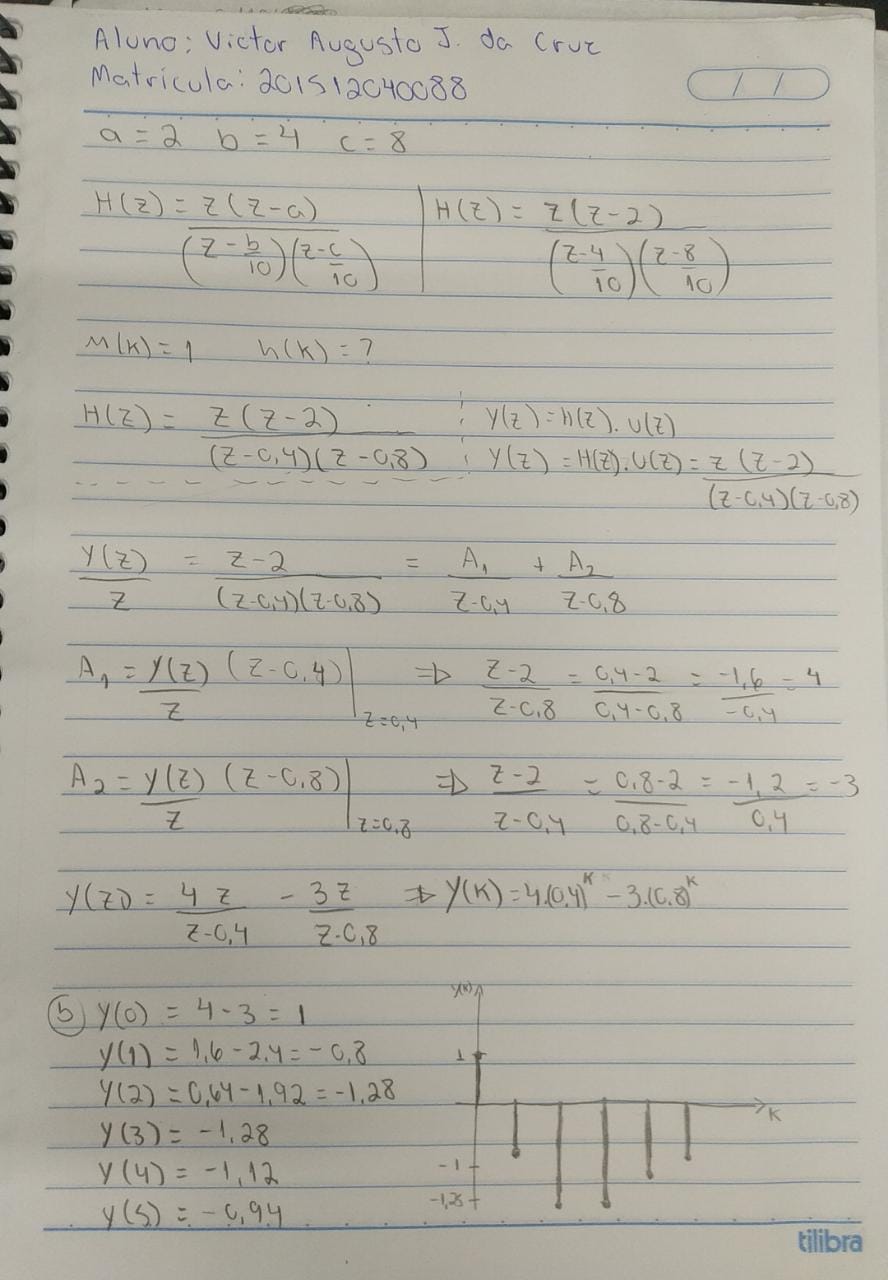 Aluno: Victor Augusto J. da Cruz
Matrícula: 201512040088
/ /
a = 2 b = 4 c = 8
H(z) = z(z-a) / (z-b/10)(z-c/10) | H(z) = z(z-2) / (z-4/10)(z-8/10)
M(K) = 1 h(K) = ?
H(z) = z(z-2) / (z-0,4)(z-0,8) ¦ Y(z) = h(z).U(z)
Y(z) = H(z).U(z) = z(z-2) / (z-0,4)(z-0,8)
Y(z)/z = z-2 / (z-0,4)(z-0,8) = A₁/z-0,4 + A₂/z-0,8
A₁ = Y(z)/z (z-0,4) |z=0,4 ⇒ z-2/z-0,8 = 0,4-2/0,4-0,8 = -1,6/-0,4 = 4
A₂ = Y(z)/z (z-0,8) |z=0,8 ⇒ z-2/z-0,4 = 0,8-2/0,8-0,4 = -1,2/0,4 = -3
Y(z) = 4z/z-0,4 - 3z/z-0,8 ⇒ Y(K) = 4.(0,4)ᴷ - 3.(0,8)ᴷ
b Y(0) = 4-3 = 1
Y(1) = 1,6-2,4 = -0,8
Y(2) = 0,64-1,92 = -1,28
Y(3) = -1,28
Y(4) = -1,12
Y(5) = -0,94
Y(K)
1
K
-1
-1,28
tilibra